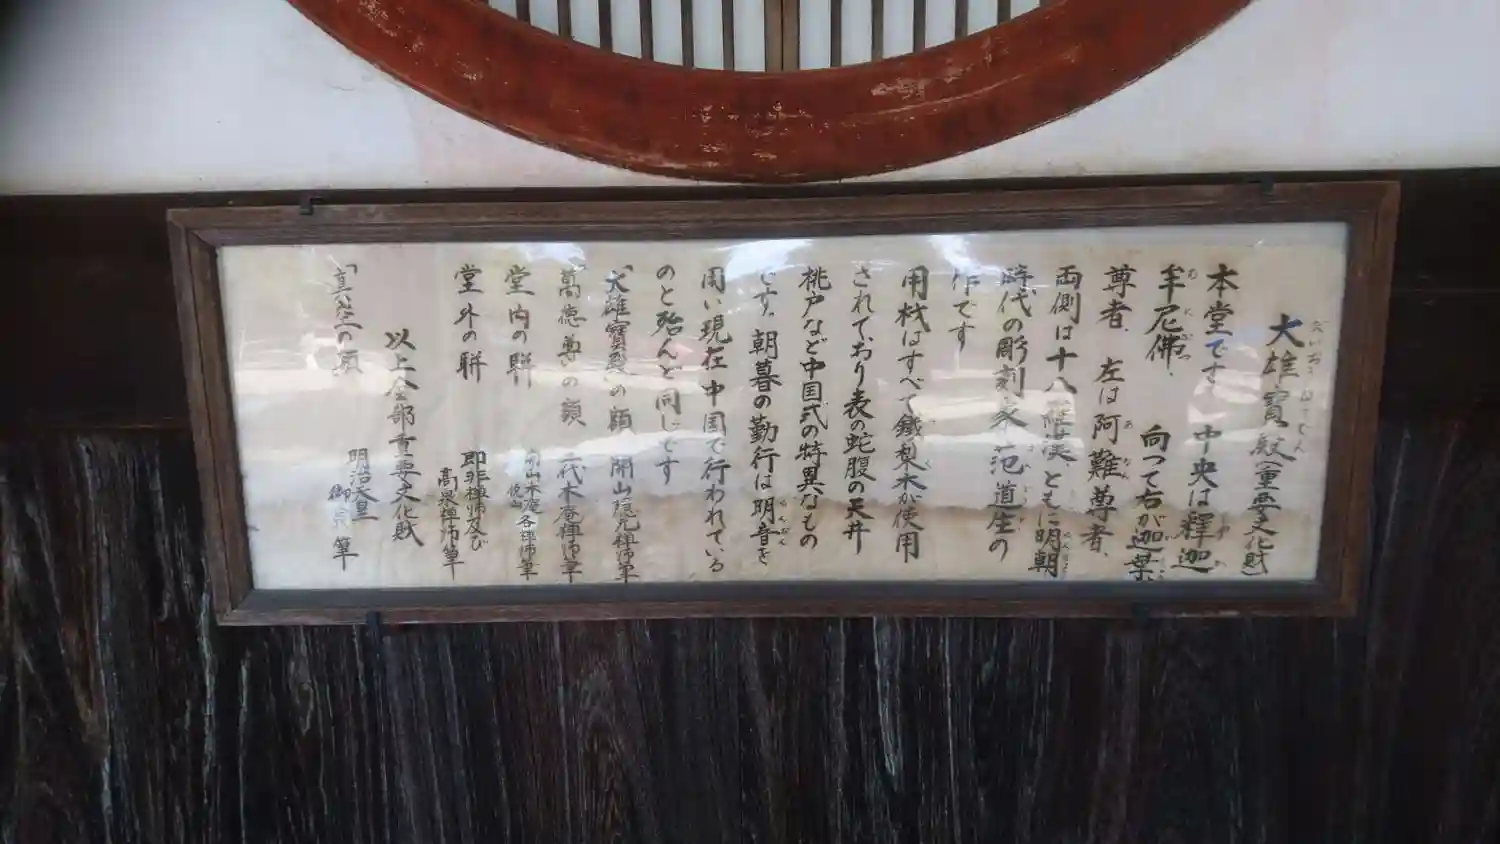 大雄寳殿(重要文化財)
本堂です 中央は釋迦
牟尼佛、 向つて右が迦葉
尊者、 左は阿難尊者、
両側は十八羅漢、ともに明朝
時代の彫刻家 范道生の
作です
用材はすべて鐵梨木が使用
されており表の蛇腹の天井
桃戸など中国式の特異なもの
です。朝暮の勤行は明音を
用い現在中国で行われている
のと殆んど同じです
「大雄寳殿」の額 開山隠元禅師筆
「萬德尊」の額 二代木庵禅師筆
堂内の聨 木庵 各禅師筆
堂外の聨 即非禅師及び
高泉禅師筆
以上全部重要文化財
「真空」の額 明治天皇
御 筆